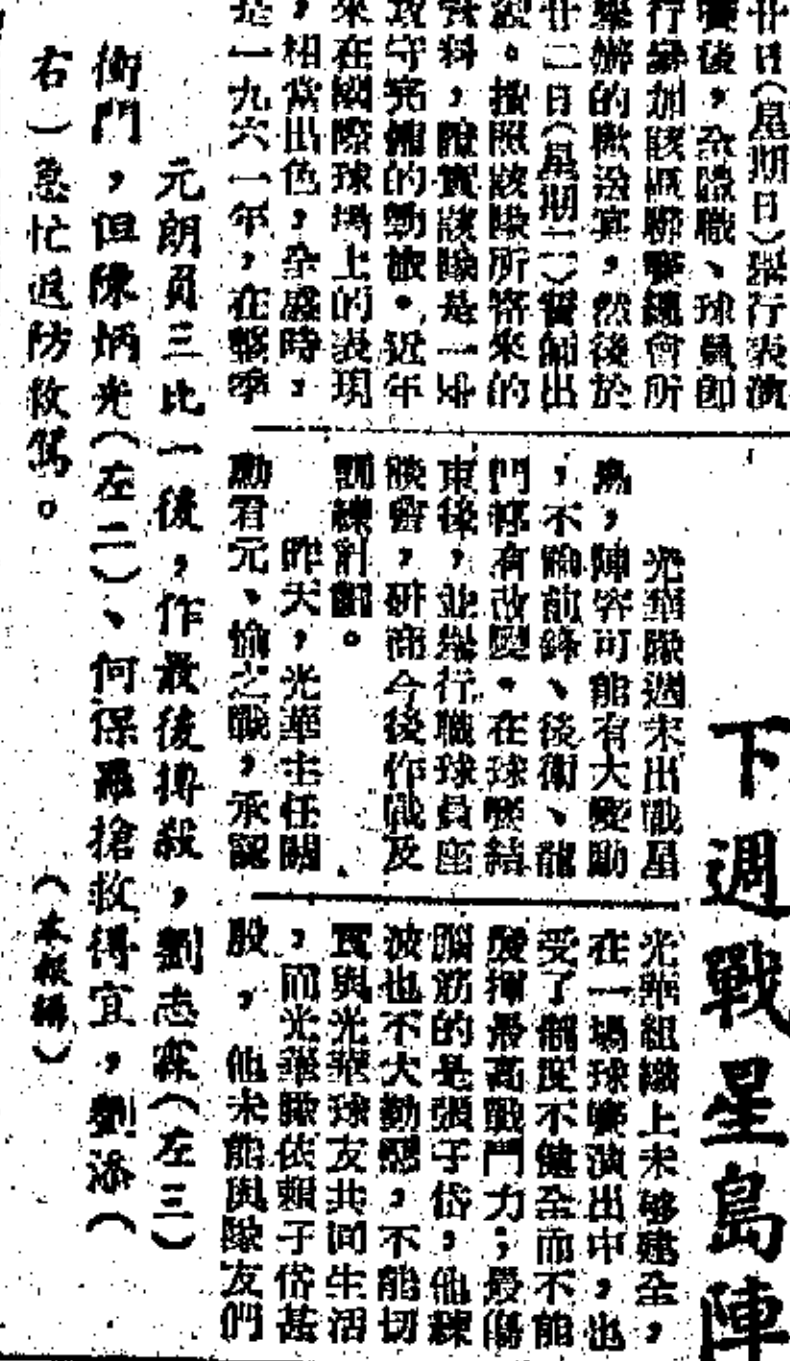 下週戰星島陣
廿日(星期日)舉行表演
賽後，全體職、球員即
行參加該區聯賽總會所
舉辦的歡送宴，然後於
廿二日(星期二)誓師出
發。據照該隊所寄來的
資料，證實該隊是一隊
攻守完備的勁旅。近年
來在國際球場上的表現
，相當出色，全盛時，
是一九六一年，在整季
光華隊週末出戰星
島，陣容可能有大變動
，不論前鋒、後衛、龍
門都有改變。在球賽結
束後，並舉行職球員座
談會，研商今後作戰及
訓練計劃。
昨天，光華主任關
勳君元、愉之戰，承認
光華組織上未够建全，
在一場球賽演出中，也
受了制度不健全而不能
發揮最高戰鬥力；最傷
腦筋的是張子岱，他練
波也不大勤懇，不能切
實與光華球友共同生活
，而光華隊依賴子岱甚
殷，他未能與隊友們
元朗員三比一後，作最後搏殺，劉志霖(左三)
衝門，但陳炳光(左二)、何保羅搶救得宜，劉添(
右)急忙退防救駕。 (本報攝)